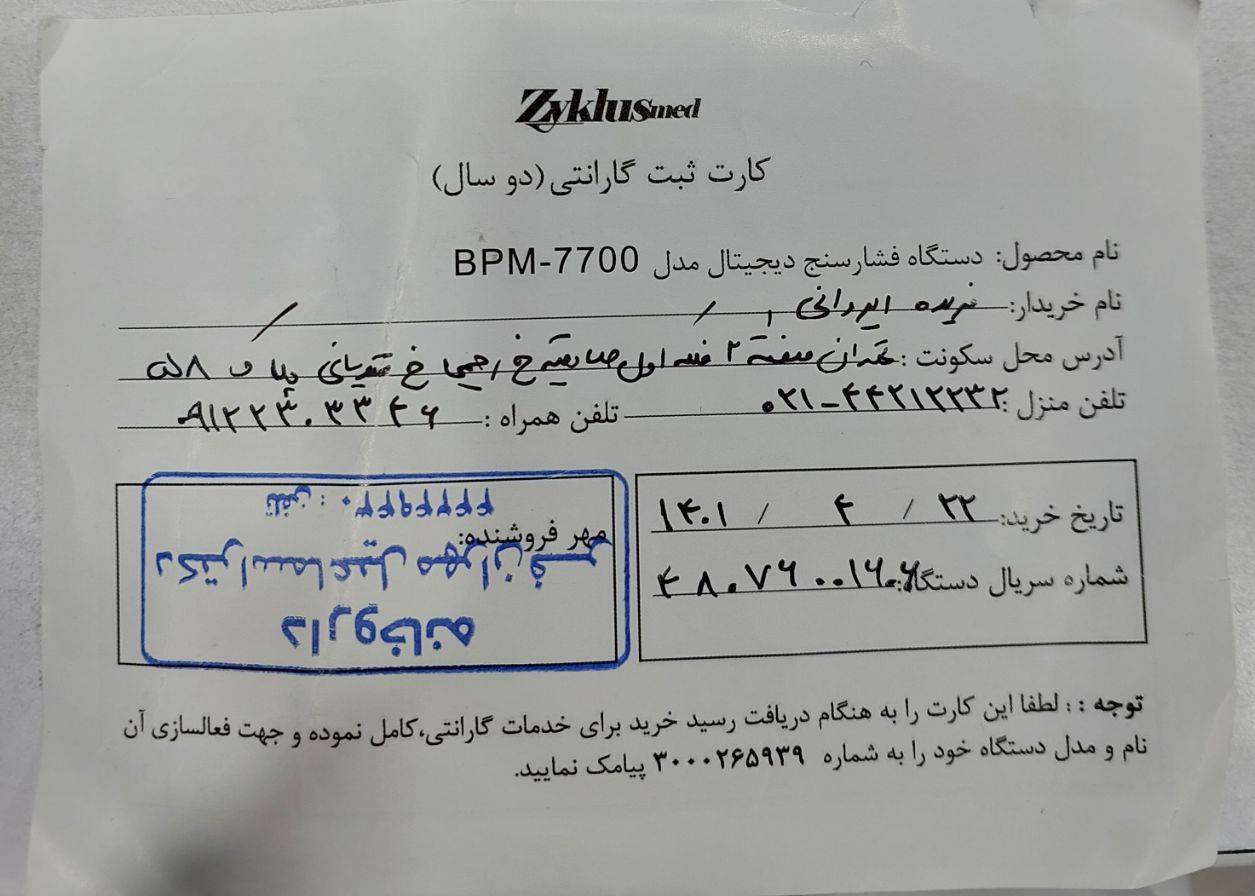 Zyklusmed
کارت ثبت گارانتی (دو سال)
نام محصول: دستگاه فشارسنج دیجیتال مدل BPM-7700
نام خریدار: فریده ایروانی
آدرس محل سکونت: تهران منطقه ۲ فلکه اول صادقیه خ خ پلاک ۵۸
تلفن منزل: ۰۲۱-۴۴۲۱۲۲۳۲ تلفن همراه:
تاریخ خرید: ۲۲ / ۴ / ۱۴۰۱
شماره سریال دستگاه:
مهر فروشنده:
داروخانه
دکتر اسماعیل مهران فر
تلفن:
توجه : : لطفا این کارت را به هنگام دریافت رسید خرید برای خدمات گارانتی،کامل نموده و جهت فعالسازی آن
نام و مدل دستگاه خود را به شماره ۳۰۰۰۲۶۵۹۳۹ پیامک نمایید.